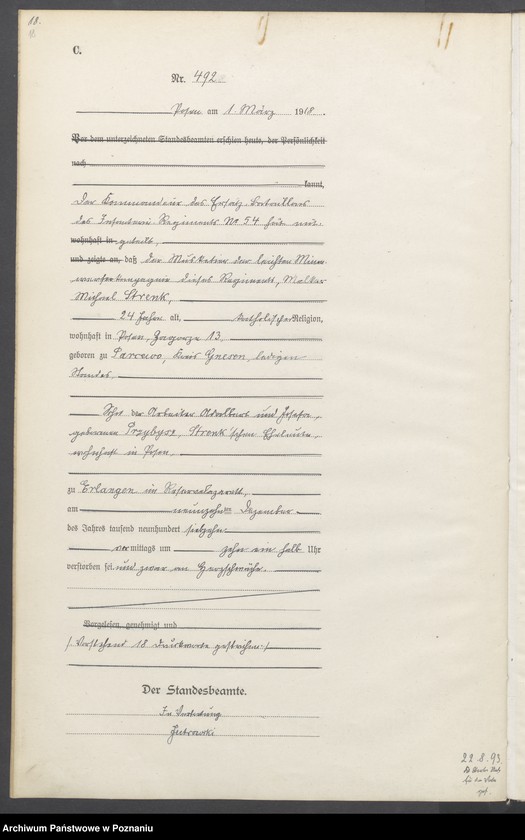 18.
C.
Nr. 492
Posen am 1. März 1918.
Vor dem unterzeichneten Standesbeamten erschien heute, der Persönlichkeit
nach
kannt,
Der Kommandeur des Ersatz-Bataillons
des Infanterie Regiments No 54 hat mit-
wohnhaft in geteilt,
und zeigte an, daß der Musketier der leichten Minen-
werferkompagnie dieses Regiments, Maler
Michael Strenk,
24 Jahre alt, katholischer Religion,
wohnhaft in Posen, Zagorze 13,
geboren zu Parcewo, Kreis Gnesen, ledigen
Standes,
Sohn der Arbeiter Adalbert und Josefa,
geborene Przybysz, Strenk'schen Eheleute,
wohnhaft in Posen,
zu Erlangen im Reservelazarett,
am neunzehnten Dezember
des Jahres tausend neunhundert siebzehn
vormittags um zehn ein halb Uhr
verstorben sei und zwar an Herzschwäche.
Vorgelesen, genehmigt und
/: Vorstehend 18 Druckworte gestrichen :/
Der Standesbeamte.
In Vertretung
22.8.93.
Archiwum Państwowe w Poznaniu